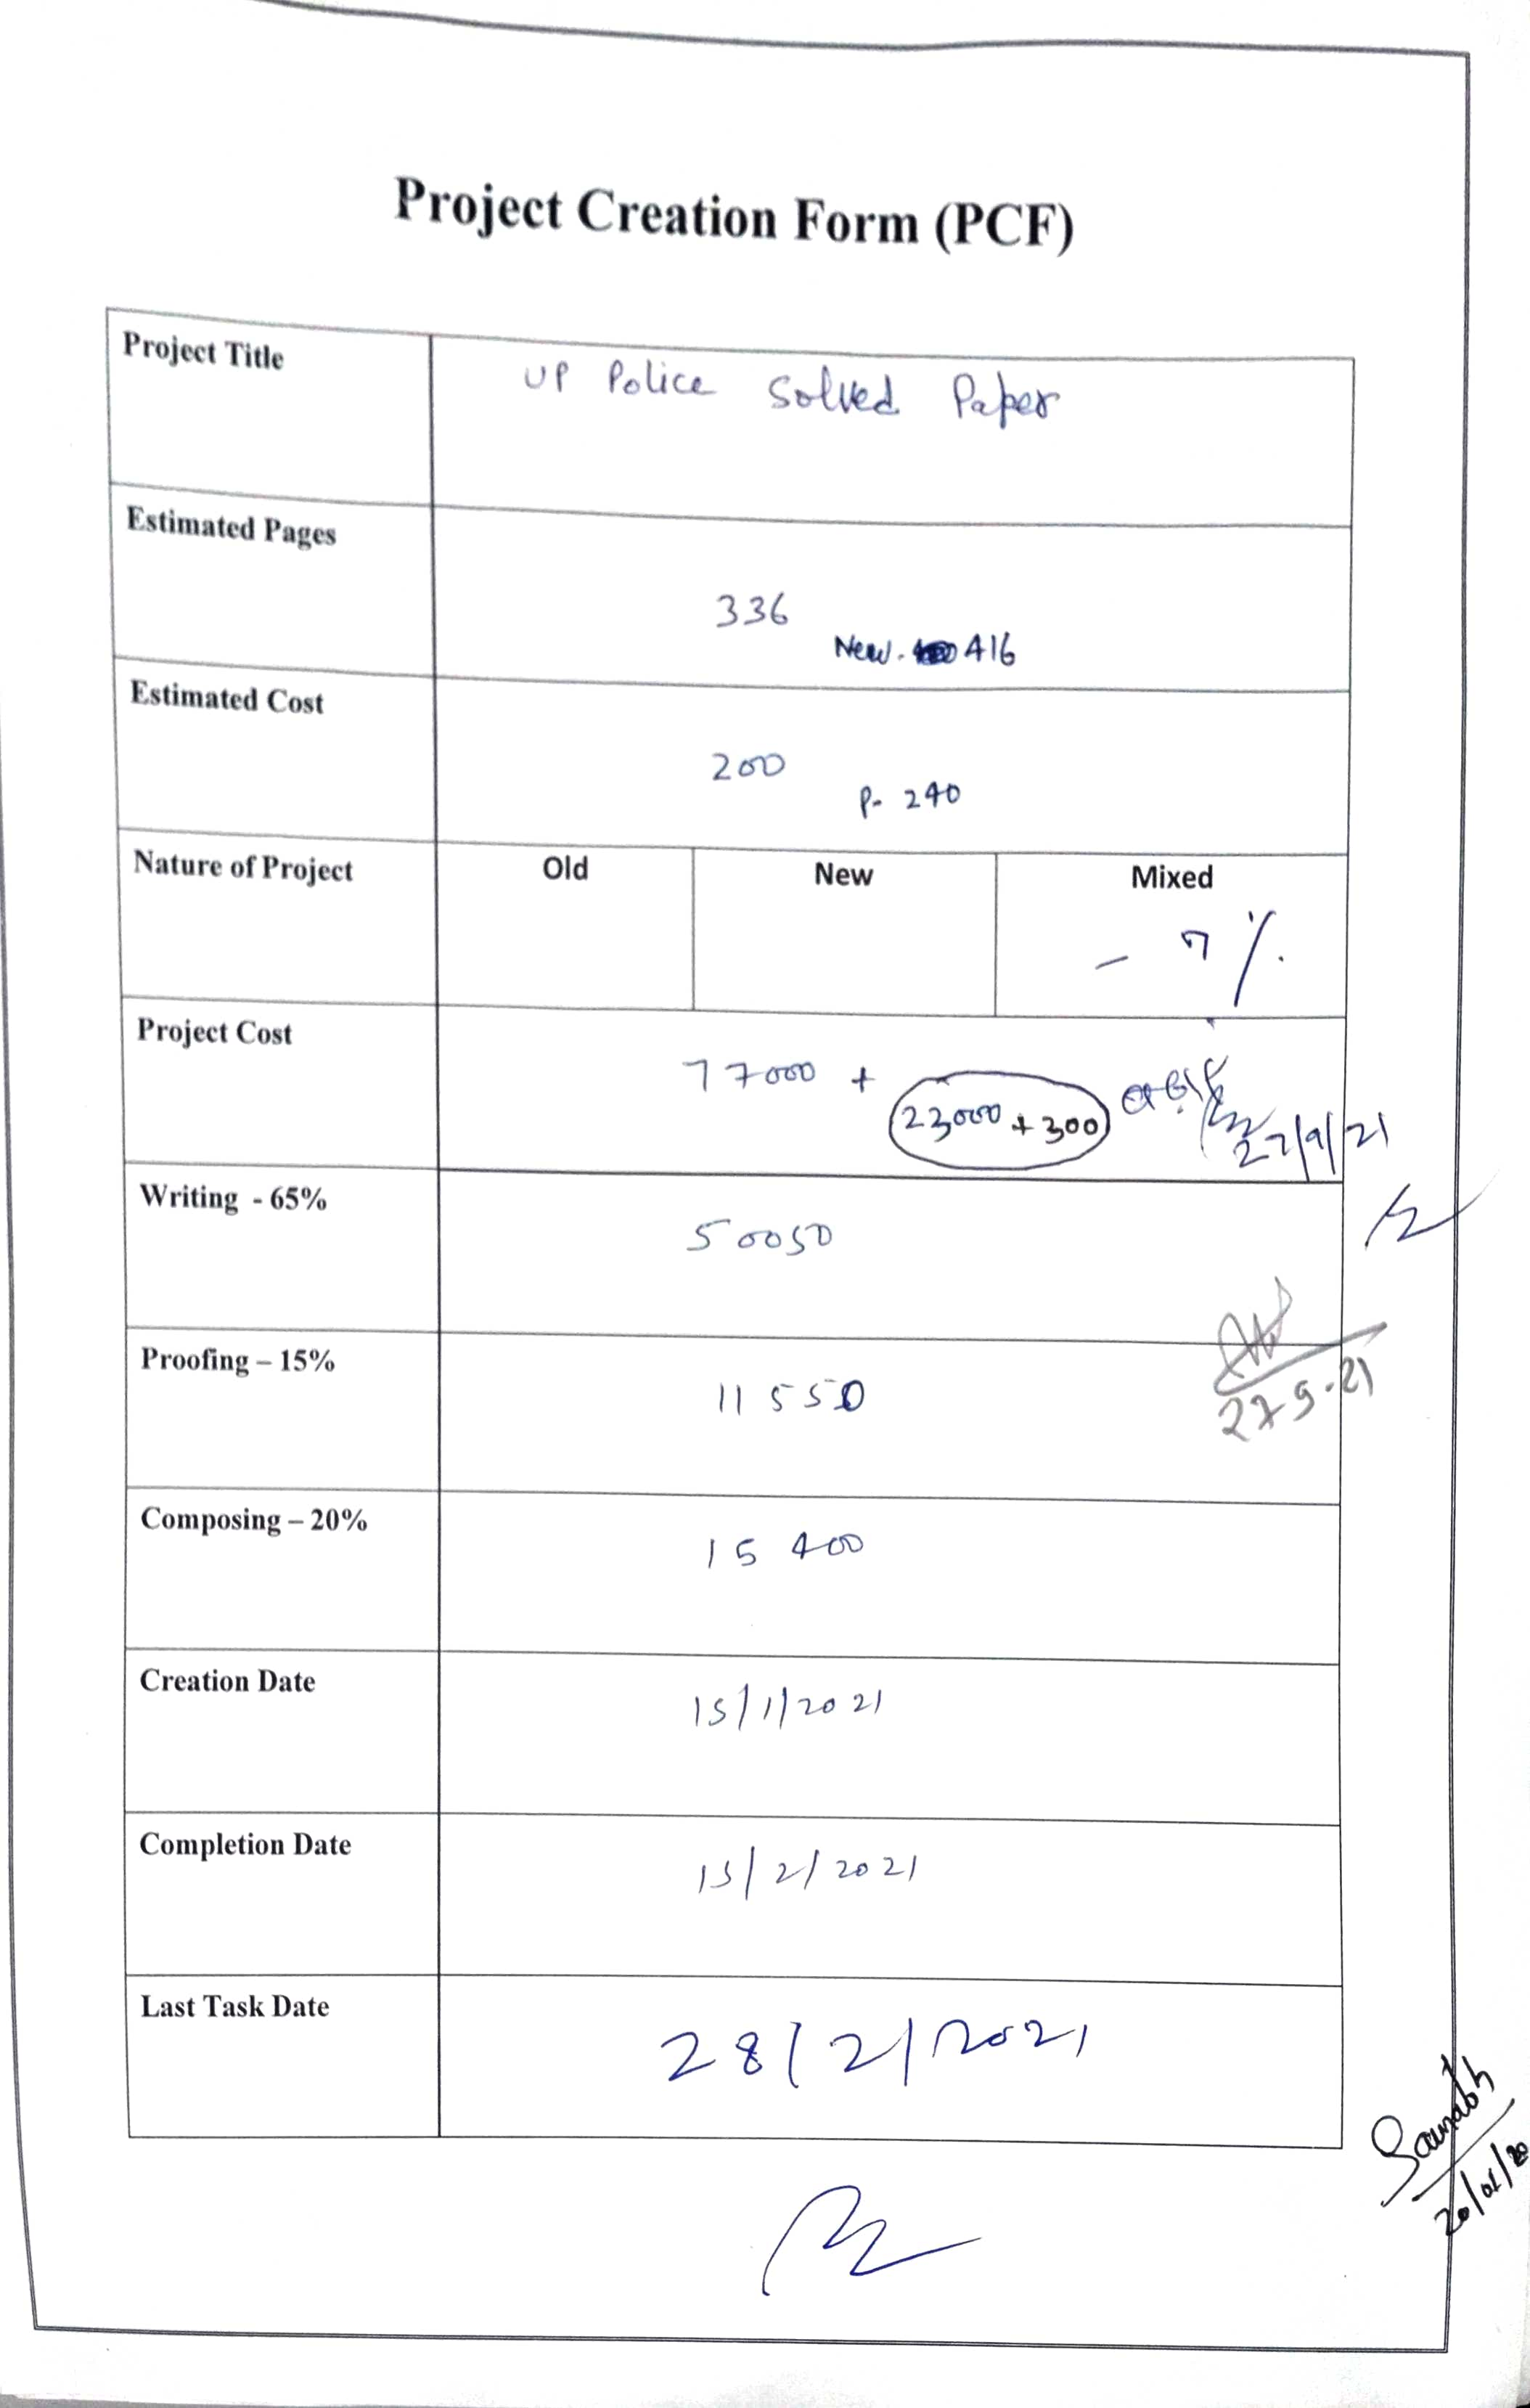 Project Creation Form (PCF)
Project Title
UP Police Solved Paper
Estimated Pages
336
New. 416
Estimated Cost
200
P- 240
Nature of Project
Old
New
Mixed
- 7%
Project Cost
77000 +
23000 + 300
27/9/21
Writing - 65%
50050
Proofing – 15%
11550
27-9-21
Composing – 20%
15400
Creation Date
15/1/2021
Completion Date
15/2/2021
Last Task Date
28/2/2021
Saurabh